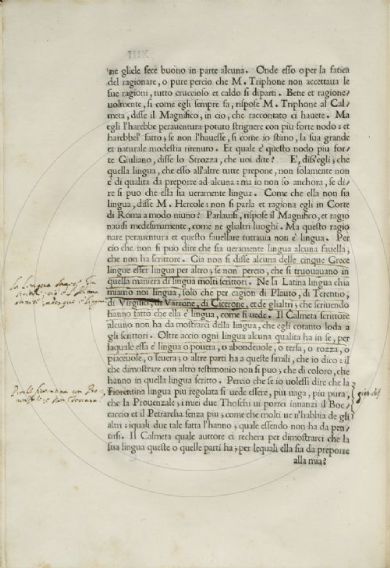 ne gliele fece buono in parte alcuna. Onde esso o per la fatica
del ragionare, o pure percio che M. Triphone non accettaua le
sue ragioni, tutto cruccioso et caldo si diparti. Bene et ragione/
uolmente, si come egli sempre fa, rispose M. Triphone al Cal/
meta, disse il Magnifico, in cio, che raccontato ci hauete. Ma
egli l'harebbe perauentura potuto strignere con piu forte nodo: et
harebbel fatto; se non l'hauesse, si come io stimo, la sua grande
et naturale modestia ritenuto. Et quale e questo nodo piu for/
te Giuliano, disse lo Strozza, che uoi dite? E', diss'egli; che
quella lingua, che esso all'altre tutte prepone, non solamente non
e di qualita da preporre ad alcuna: ma io non so anchora, se di/
re si puo che ella sia ueramente lingua. Come che ella non sia
lingua, disse M. Hercole: non si parla et ragiona egli in Corte
di Roma a modo niuno? Parlauisi, rispose il Magnifico, et ragio
nauisi medesimamente, come ne gliatri luoghi. Ma questo ragio
nare perauentura et questo fauellare tuttauia non e lingua. Per
cio che non si puo dire che sia ueramente lingua alcuna fauella,
che non ha scrittore. Gia non si disse alcuna delle cinque Grece
lingue esser lingua per altro, se non percio, che si truouauano in
quella maniera di lingua molti scrittori. Ne la Latina lingua chia
miamo noi lingua, solo che per cagion di Plauto, di Terentio,
di Virgilio, di Varrone, di Cicerone, et de glialtri; che scriuendo
hanno fatto che ella e lingua, come si uede. Il Calmeta scrittore
alcuno non ha da mostrarci della lingua, che egli cotanto loda a
gli scrittori. Oltre accio ogni lingua alcuna qualita ha in se, per
laquale essa e lingua o pouera, o abondeuole, o tersa, o rozza, o
piaceuole, o seuera; o altre parti ha a queste simili, che io dico: il
che dimostrare con altro testimonio non si puo, che di coloro, che
hanno in quella lingua scritto. Percio che se io uolessi dire che la
Fiorentina lingua piu regolata si uede essere, piu uaga, piu pura,
che la Prouenzale; i miei due Thoschi ui porrei innanzi il Boc/
caccio et il Petrarcha senza piu; come che molti ue n'habbia de gli
altri: iquali due tale fatta l'hanno; quale essendo non ha da pen/
tirsi. Il Calmeta quale autore ci rechera per dimostrarci che la
sua lingua queste o quelle parti ha; per lequali ella sia da preporre
alla mia?